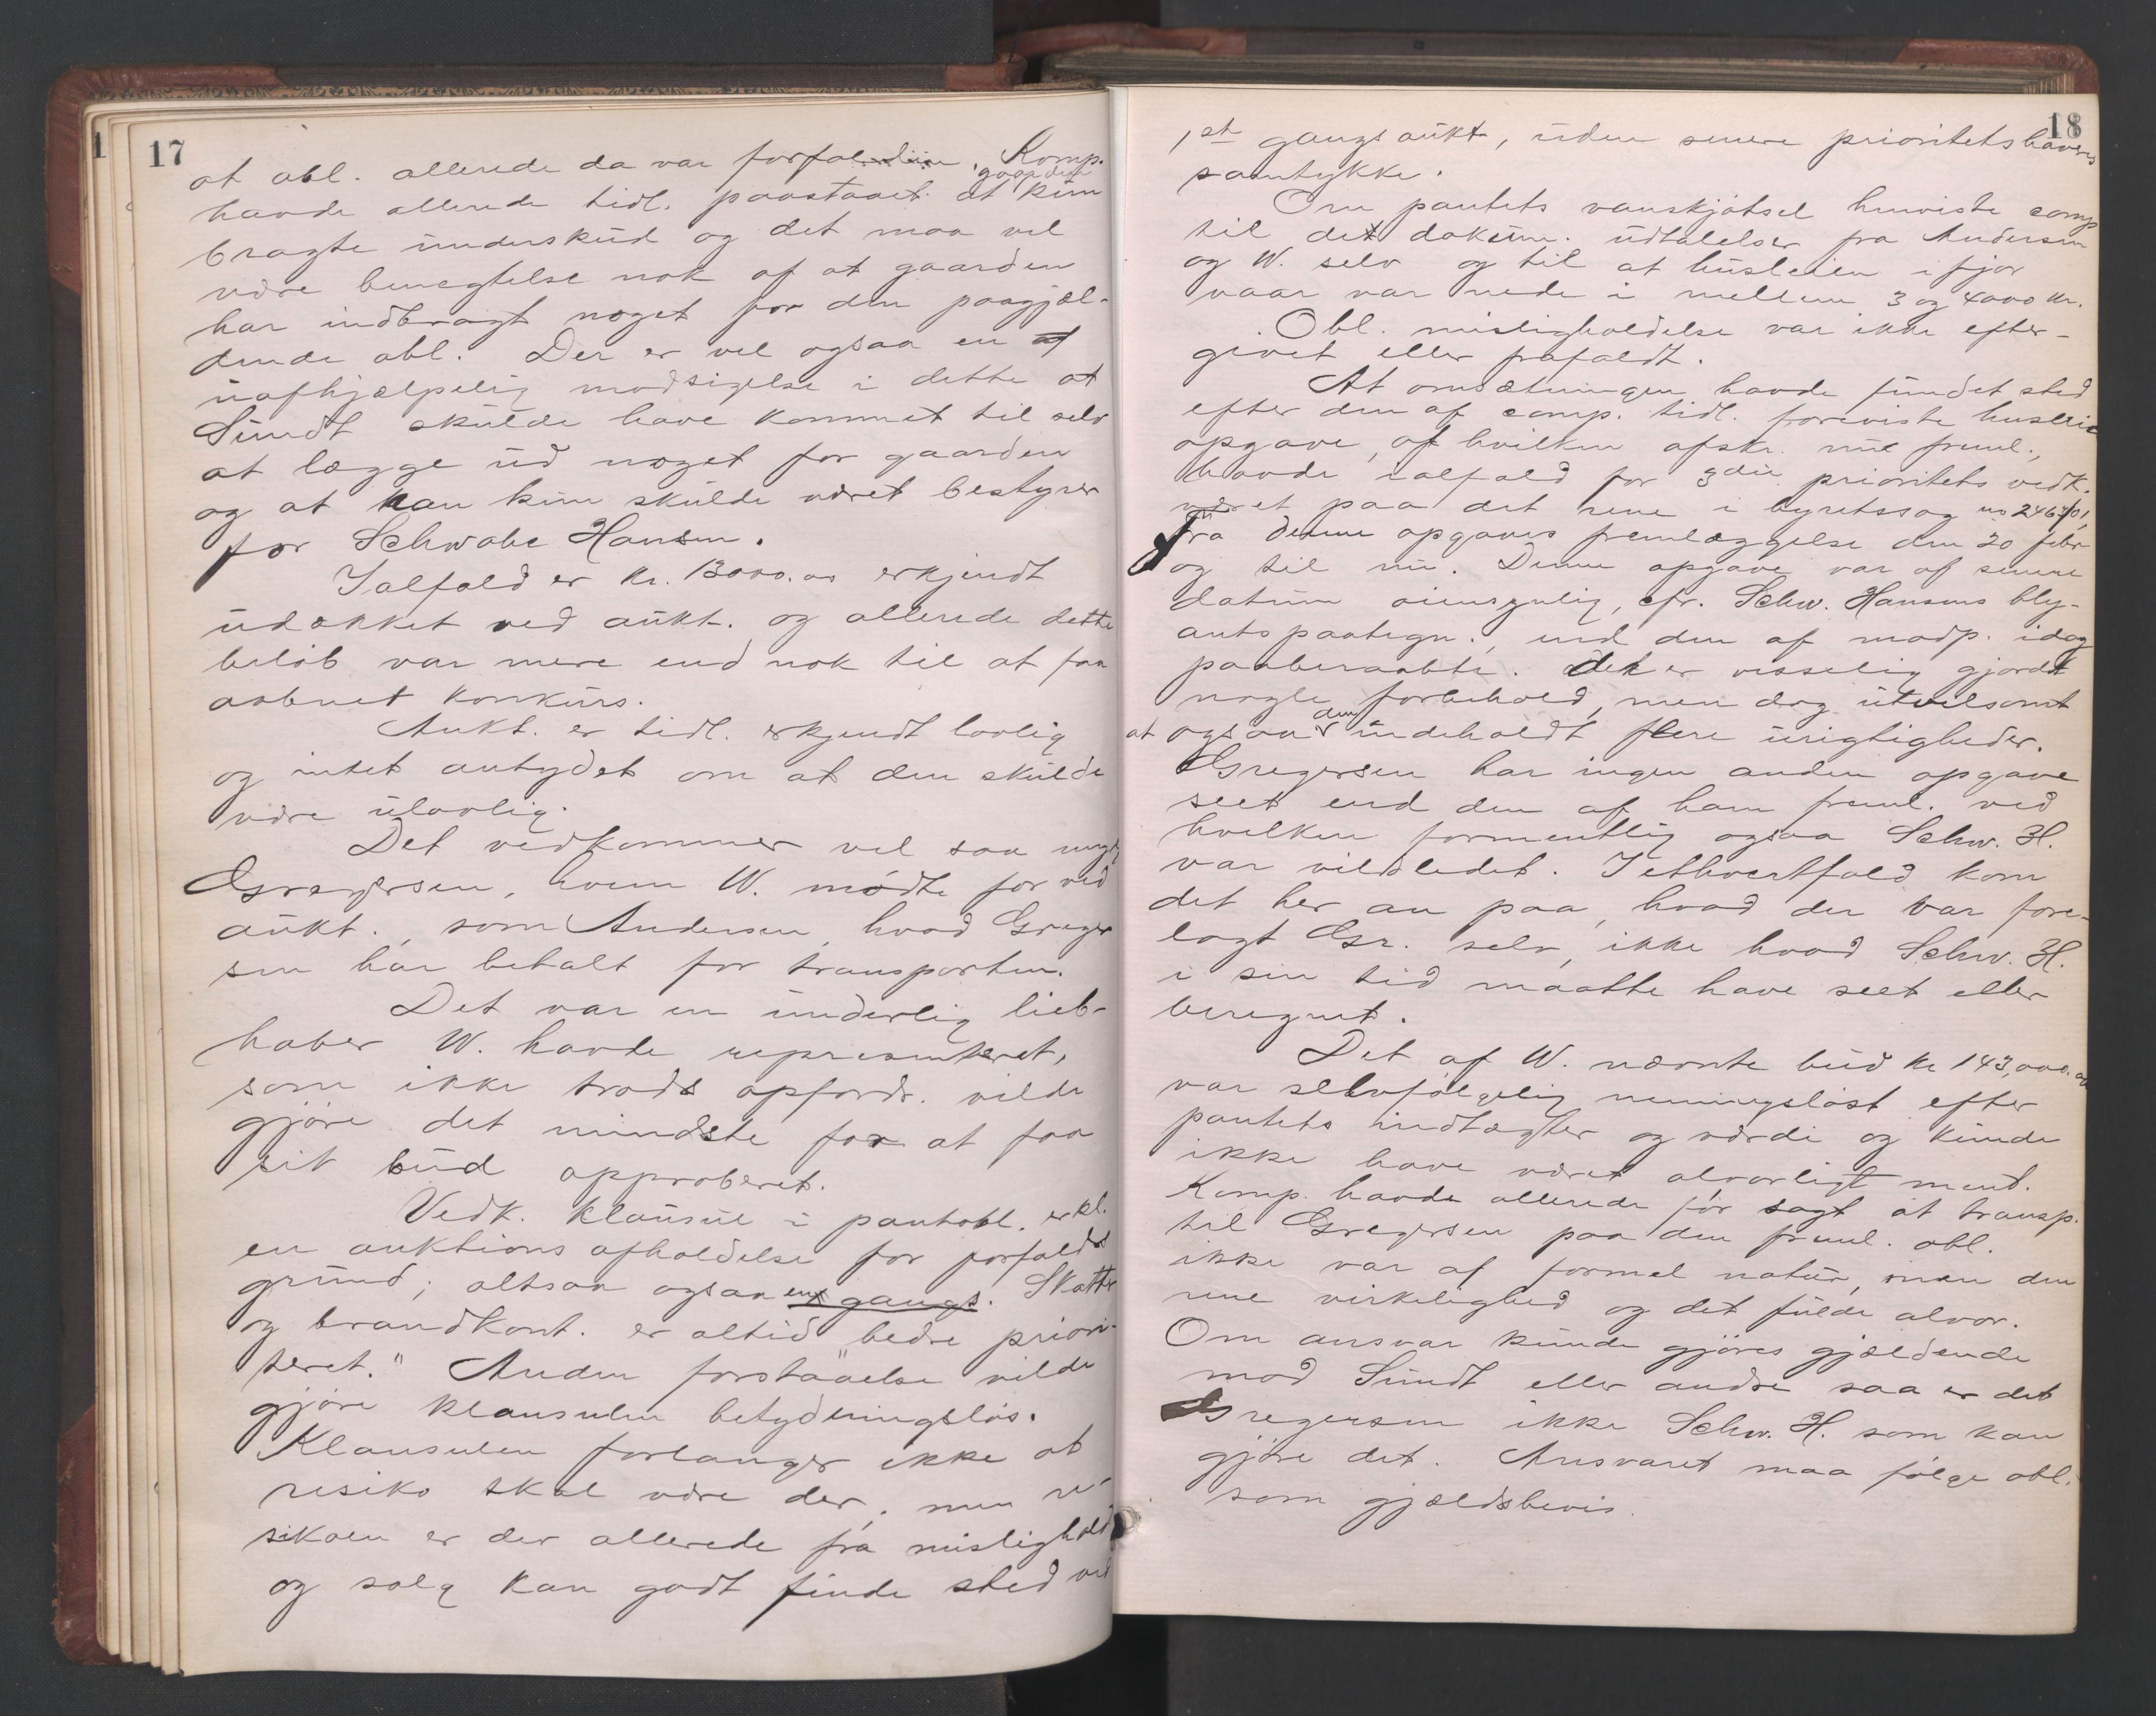 17
at obl. allerede da var forfalden. Komp.
havde allerede tidl. paastaaet at gaarden kun
bragte underskud og det maa vel
være benegtelse nok af at gaarden
har indbragt noget for den paagjæl-
dende obl. Der er vel ogsaa en af
uafhjælpelig modsigelse i dette at
Sundt skulde have kommet til selv
at lægge ud noget for gaarden
og at han kun skulde været bestyrer
for Schwabe Hansen.
Ialfald er kr. 13000.00 erkjendt
udækket ved aukt. og allerede dette
beløb var mere end nok til at faa
aabnet konkurs.
Aukt. er tidl. erkjendt lovlig
og intet antydet om at den skulde
være ulovlig.
Det vedkommer vel saa meget
Gregersen, hvem W. mødte for ved
aukt., som Andersen, hvad Greger
sen har betalt for transporten.
Det var en underlig lieb-
haber W. havde representeret,
som ikke trods opfordr. vilde
gjøre det mindste for at faa
sit bud approberet.
Vedk. klausul i pantobl. erkl.
en auktions afholdelse for forfalds
grund; altsaa ogsaa en gangs. Skatte
og brandkont. er altid "bedre priori-
teret." Anden forstaaelse vilde
gjøre klausulen betydningsløs.
Klausulen forlanger ikke at
risiko skal være der, men ri-
sikoen er der allerede fra mislighold
og salg kan godt finde sted ved
18
1ste gangs aukt, uden senere prioritetshaveres
samtykke.
Om pantets vanskjøtsel henviste comp
til det dokum. udtalelser fra Andersen
og W. selv og til at husleien ifjor
vaar var nede i mellem 3 og 4000 kr.
Obl. misligholdelse var ikke efter-
givet eller frafaldt.
At omsætningen havde fundet sted
efter den af comp. tidl. foreviste husleie
opgave, af hvilken afskr. nu freml.,
havde ialfald for 3die prioritets vedk.
været paa det rene i byretssag no 246/01,
fra denne opgaves fremlæggelse den 20 febr
og til nu. Denne opgave var af senere
datum øiensynlig, cfr. Schw. Hansens bly-
antspaategn., end den af modp. idag
paaberaabte. Der er visselig gjordt
nogle forbehold, men dog utvilsomt
at ogsaa den indeholdt flere urigtigheder.
Gregersen har ingen anden opgave
seet end den af ham freml. ved
hvilken formentlig ogsaa Schw. H.
var vildledet. I ethvertfald kom
det her an paa, hvad der var fore-
lagt Gr. selv, ikke hvad Schw. H.
i sin tid maatte have seet eller
beregnet.
Det af W. nævnte bud kr 143,000.00
var selvfølgelig meningsløst efter
pantets indtægter og værdi og kunde
ikke have været alvorligt ment.
Komp. havde allerede før sagt at transp.
til Gregersen paa den freml. obl.
ikke var af formel natur, men den
rene virkelighed og det fulde alvor.
Om ansvar kunde gjøres gjældende
mod Sundt eller andre saa er det
Gregersen ikke Schw. H. som kan
gjøre det. Ansvaret maa følge obl.
som gjældsbevis.